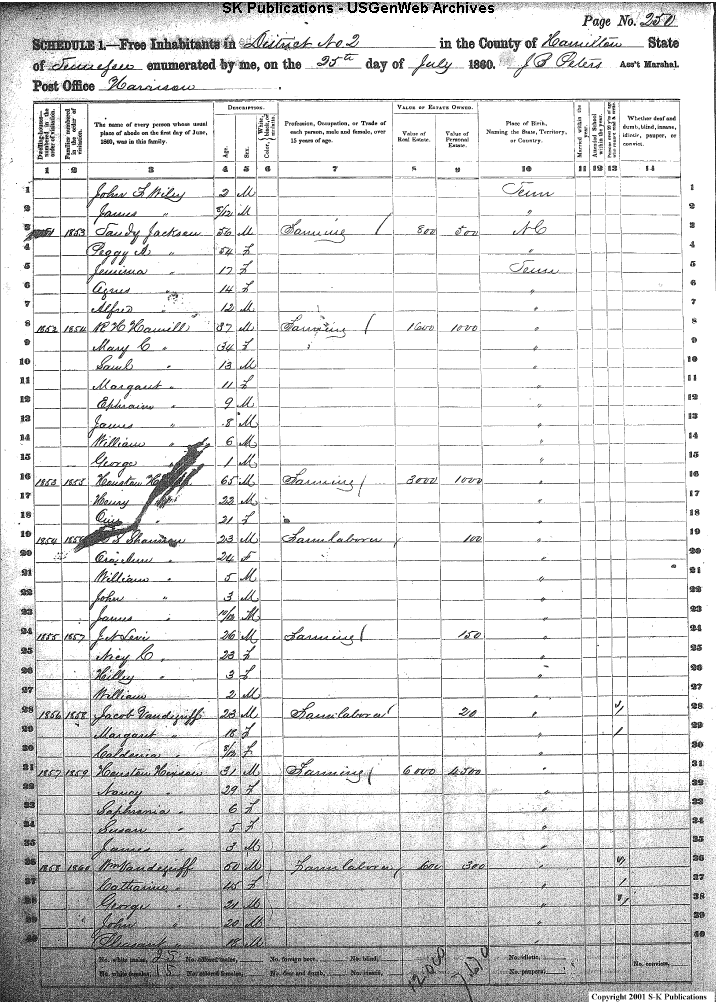 SK Publications - USGenWeb Archives
Page No. 250
SCHEDULE 1.—Free Inhabitants in District No 2 in the County of Hamilton State
of Tennessee enumerated by me, on the 25th day of July 1860. J B Peters Ass't Marshal.
Post Office Harrison
Dwelling-houses numbered in the order of visitation.
Families numbered in the order of visitation.
The name of every person whose usual place of abode on the first day of June, 1860, was in this family.
DESCRIPTION.
Age.
Sex.
Color, White, black, or mulatto.
Profession, Occupation, or Trade of each person, male and female, over 15 years of age.
VALUE OF ESTATE OWNED.
Value of Real Estate.
Value of Personal Estate.
Place of Birth, Naming the State, Territory, or Country.
Married within the year.
Attended School within the year.
Whether deaf and dumb, blind, insane, idiotic, pauper, or convict.
1 2 3 4 5 6 7 8 9 10 11 12 13 14
1 John F Wily 2 M Tenn 1
2 James " 8/12 M " 2
3 1853 Tandy Jackson 56 M Farming 800 500 NC 3
4 Peggy A " 54 f " 4
5 Jemima " 17 f Tenn 5
6 Agnes " 14 f " 6
7 Alfred " 12 M " 7
8 1852 1854 R H Hamill 37 M Farming 1600 1000 " 8
9 Mary C " 34 f " 9
10 Saml " 13 M " 10
11 Margaret " 11 f " 11
12 Ephraim " 9 M " 12
13 James " 8 M " 13
14 William " 6 M " 14
15 George " 1 M " 15
16 1853 1855 Houston 65 M Farming 3000 1000 " 16
17 Henry 22 M " 17
18 21 f " 18
19 1854 1856 Shannon 23 M Farm laborer 100 " 19
20 24 F " 20
21 William " 5 M " 21
22 John " 3 M " 22
23 James " 10/12 M " 23
24 1855 1857 J N Levi 26 M Farming 150 " 24
25 Nicy C " 23 f " 25
26 3 f " 26
27 William " 2 M " 27
28 1856 1858 Jacob Vandegriff 23 M Farm laborer 20 " 28
29 Margaret " 18 f " 1 29
30 " 8/12 f " 30
31 1857 1859 Houston Hixson 31 M Farming 6000 4500 " 31
32 Nancy " 29 f " 32
33 Saphronia " 6 f " 33
34 Susan " 5 f " 34
35 James " 3 M " 35
36 1858 1860 Wm Vandegriff 50 M Farm laborer 600 300 " 36
37 Catharine " 45 f " 1 37
38 George " 21 M " 38
39 John " 20 M " 39
40 Pleasant " 18 M " 40
No. white males, 25 No. colored males, No. foreign born, No. blind, 12,000 7620 No. idiotic, No. convicts,
No. white females, 15 No. colored females, No. deaf and dumb, No. insane, No. paupers,
Copyright 2001 S-K Publications